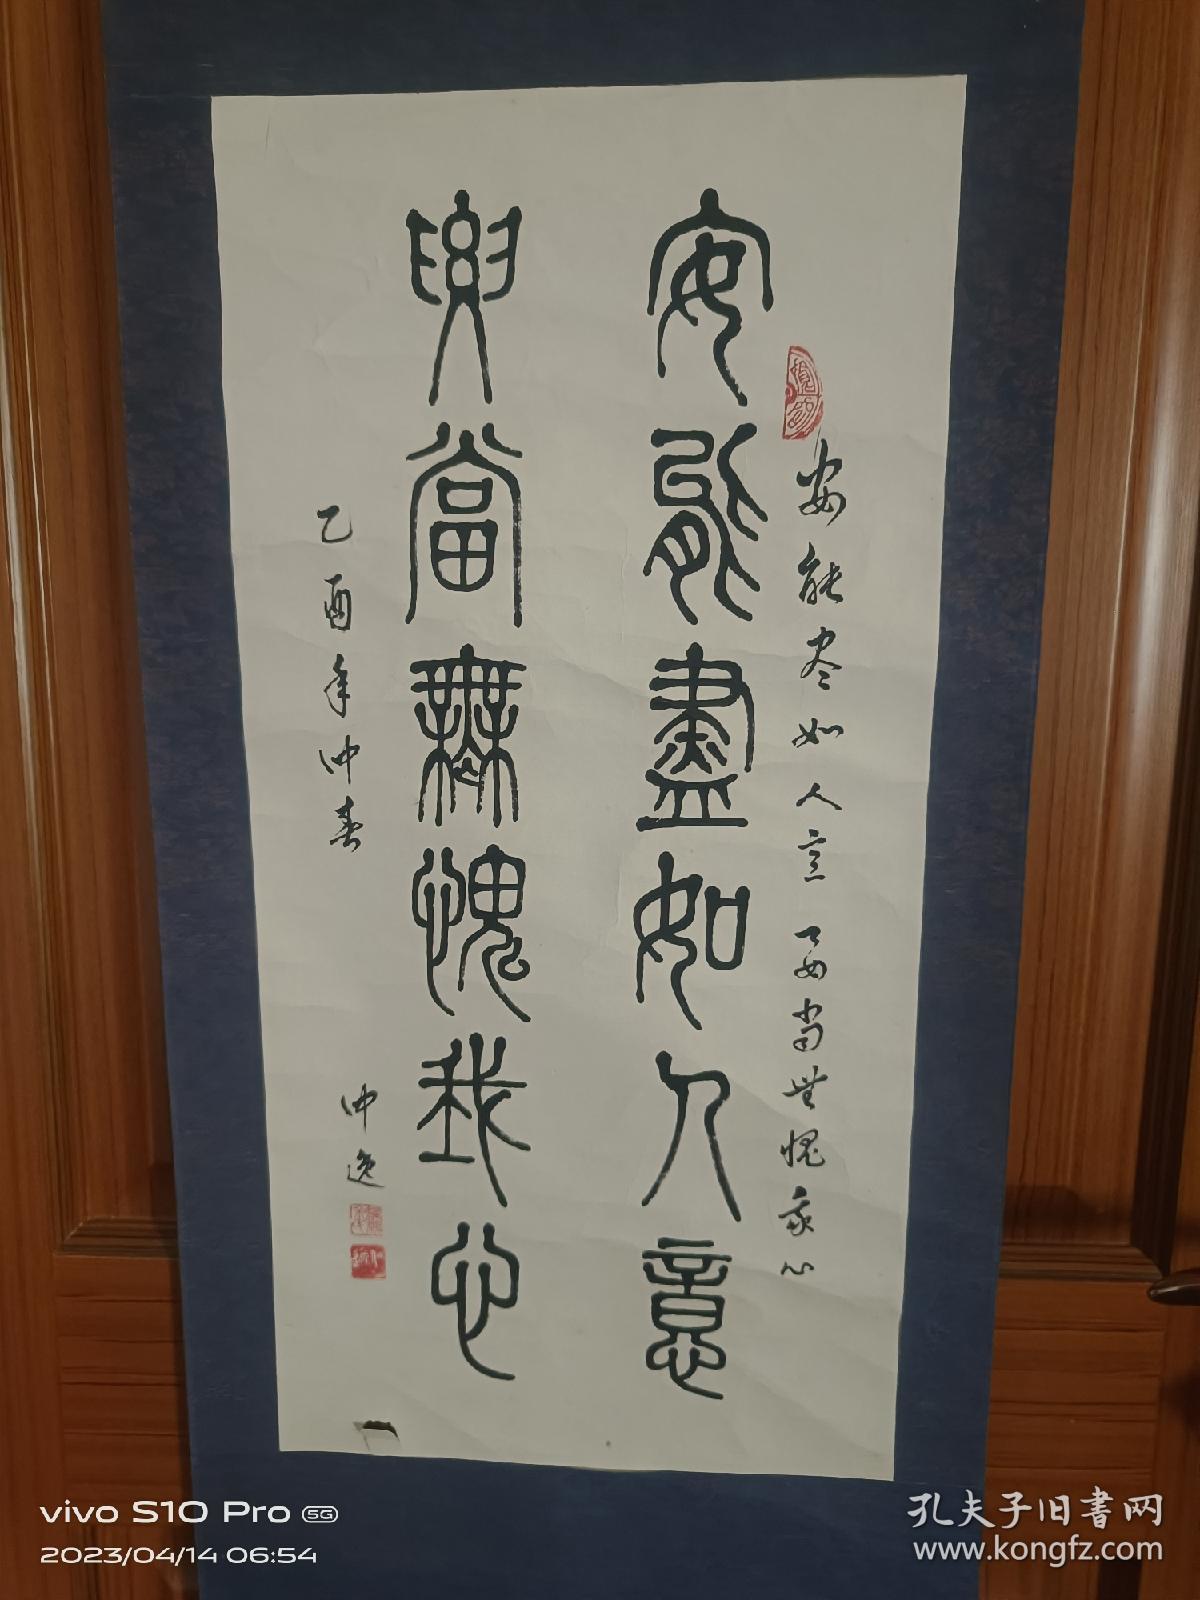 安能尽如人意要当無愧我心
安能盡如人意
要當無愧我心
乙酉年仲春
仲逸
vivo S10 Pro 5G
2023/04/14 06:54
孔夫子旧書网
www.kongfz.com